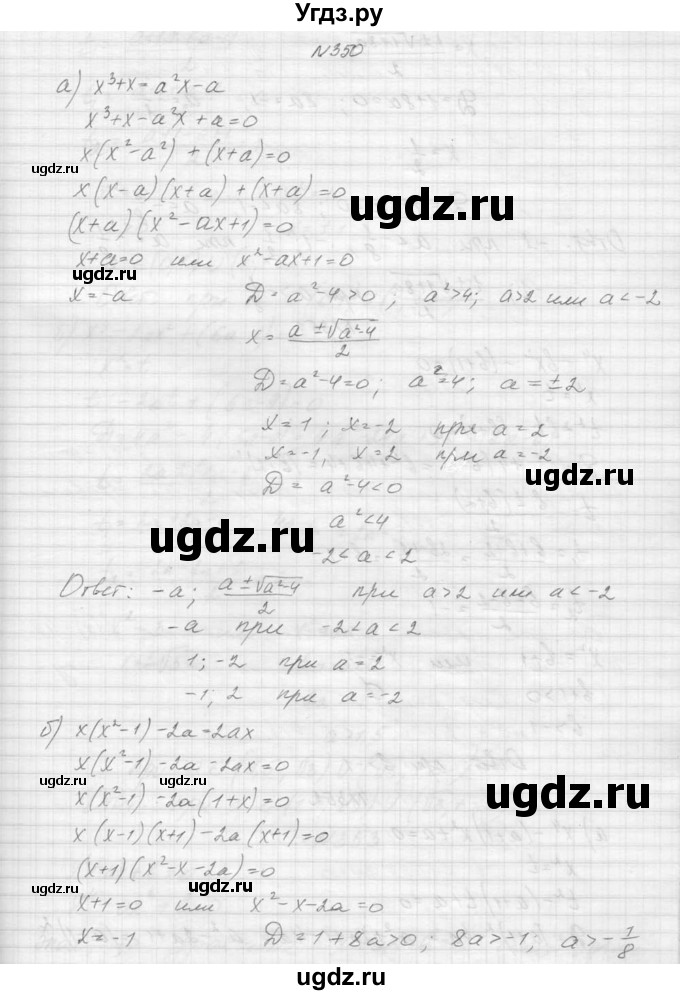 Угдз.ру
N350
а) x³+x=a²x-a
x³+x-a²x+a=0
x(x²-a²)+(x+a)=0
ugdz.ru
x(x-a)(x+a)+(x+a)=0
ugdz.ru
(x+a)(x²-ax+1)=0
x+a=0 или x²-ax+1=0
ugdz.ru
x=-a D=a²-4>0; a²>4; a>2 или a<-2
x=(a±√(a²-4))/2
D=a²-4=0; a²=4; a=±2
x=1; x=-2 при a=2
x=-1, x=2 при a=-2
ugdz.ru
D=a²-4<0
ugdz.ru
a²<4
-2<a<2
Ответ: -a; (a±√(a²-4))/2 при a>2 или a<-2
-a при -2<a<2
1; -2 при a=2
-1; 2 при a=-2
б) x(x²-1)-2a=2ax
x(x²-1)-2a-2ax=0
ugdz.ru
ugdz.ru
x(x²-1)-2a(1+x)=0
x(x-1)(x+1)-2a(x+1)=0
(x+1)(x²-x-2a)=0
ugdz.ru
ugdz.ru
x+1=0 или x²-x-2a=0
x=-1 D=1+8a>0; 8a>-1; a>-1/8
ugdz.ru